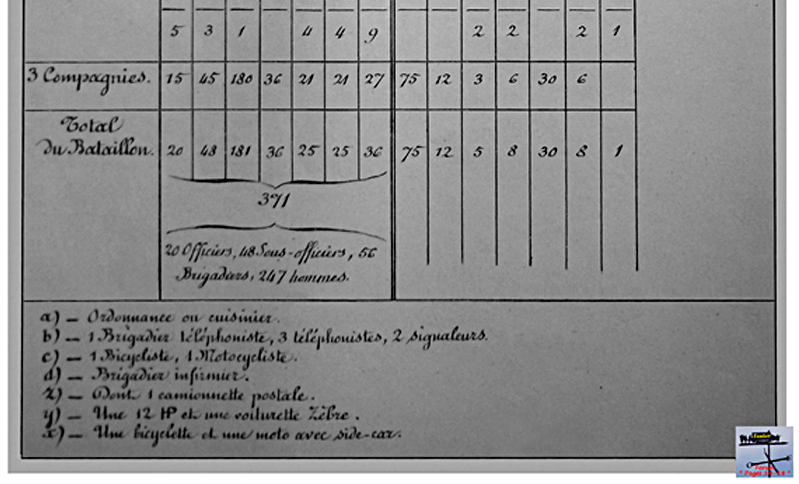 5 3 1 4 4 9 2 2 2 1
3 Compagnies. 15 45 180 36 21 21 27 75 12 3 6 30 6
Total
du Bataillon. 20 48 181 36 25 25 36 75 12 5 8 30 8 1
371
20 Officiers, 48 Sous-officiers, 56
Brigadiers, 247 hommes.
a) — Ordonnance ou cuisinier.
b) — 1 Brigadier téléphoniste, 3 téléphonistes, 2 signaleurs.
c) — 1 Bicycliste, 1 Motocycliste.
d) — Brigadier infirmier.
z) — Dont 1 camionnette postale.
y) — Une 12 HP et une voiturette Zèbre.
x) — Une bicyclette et une moto avec side-car.
Forum